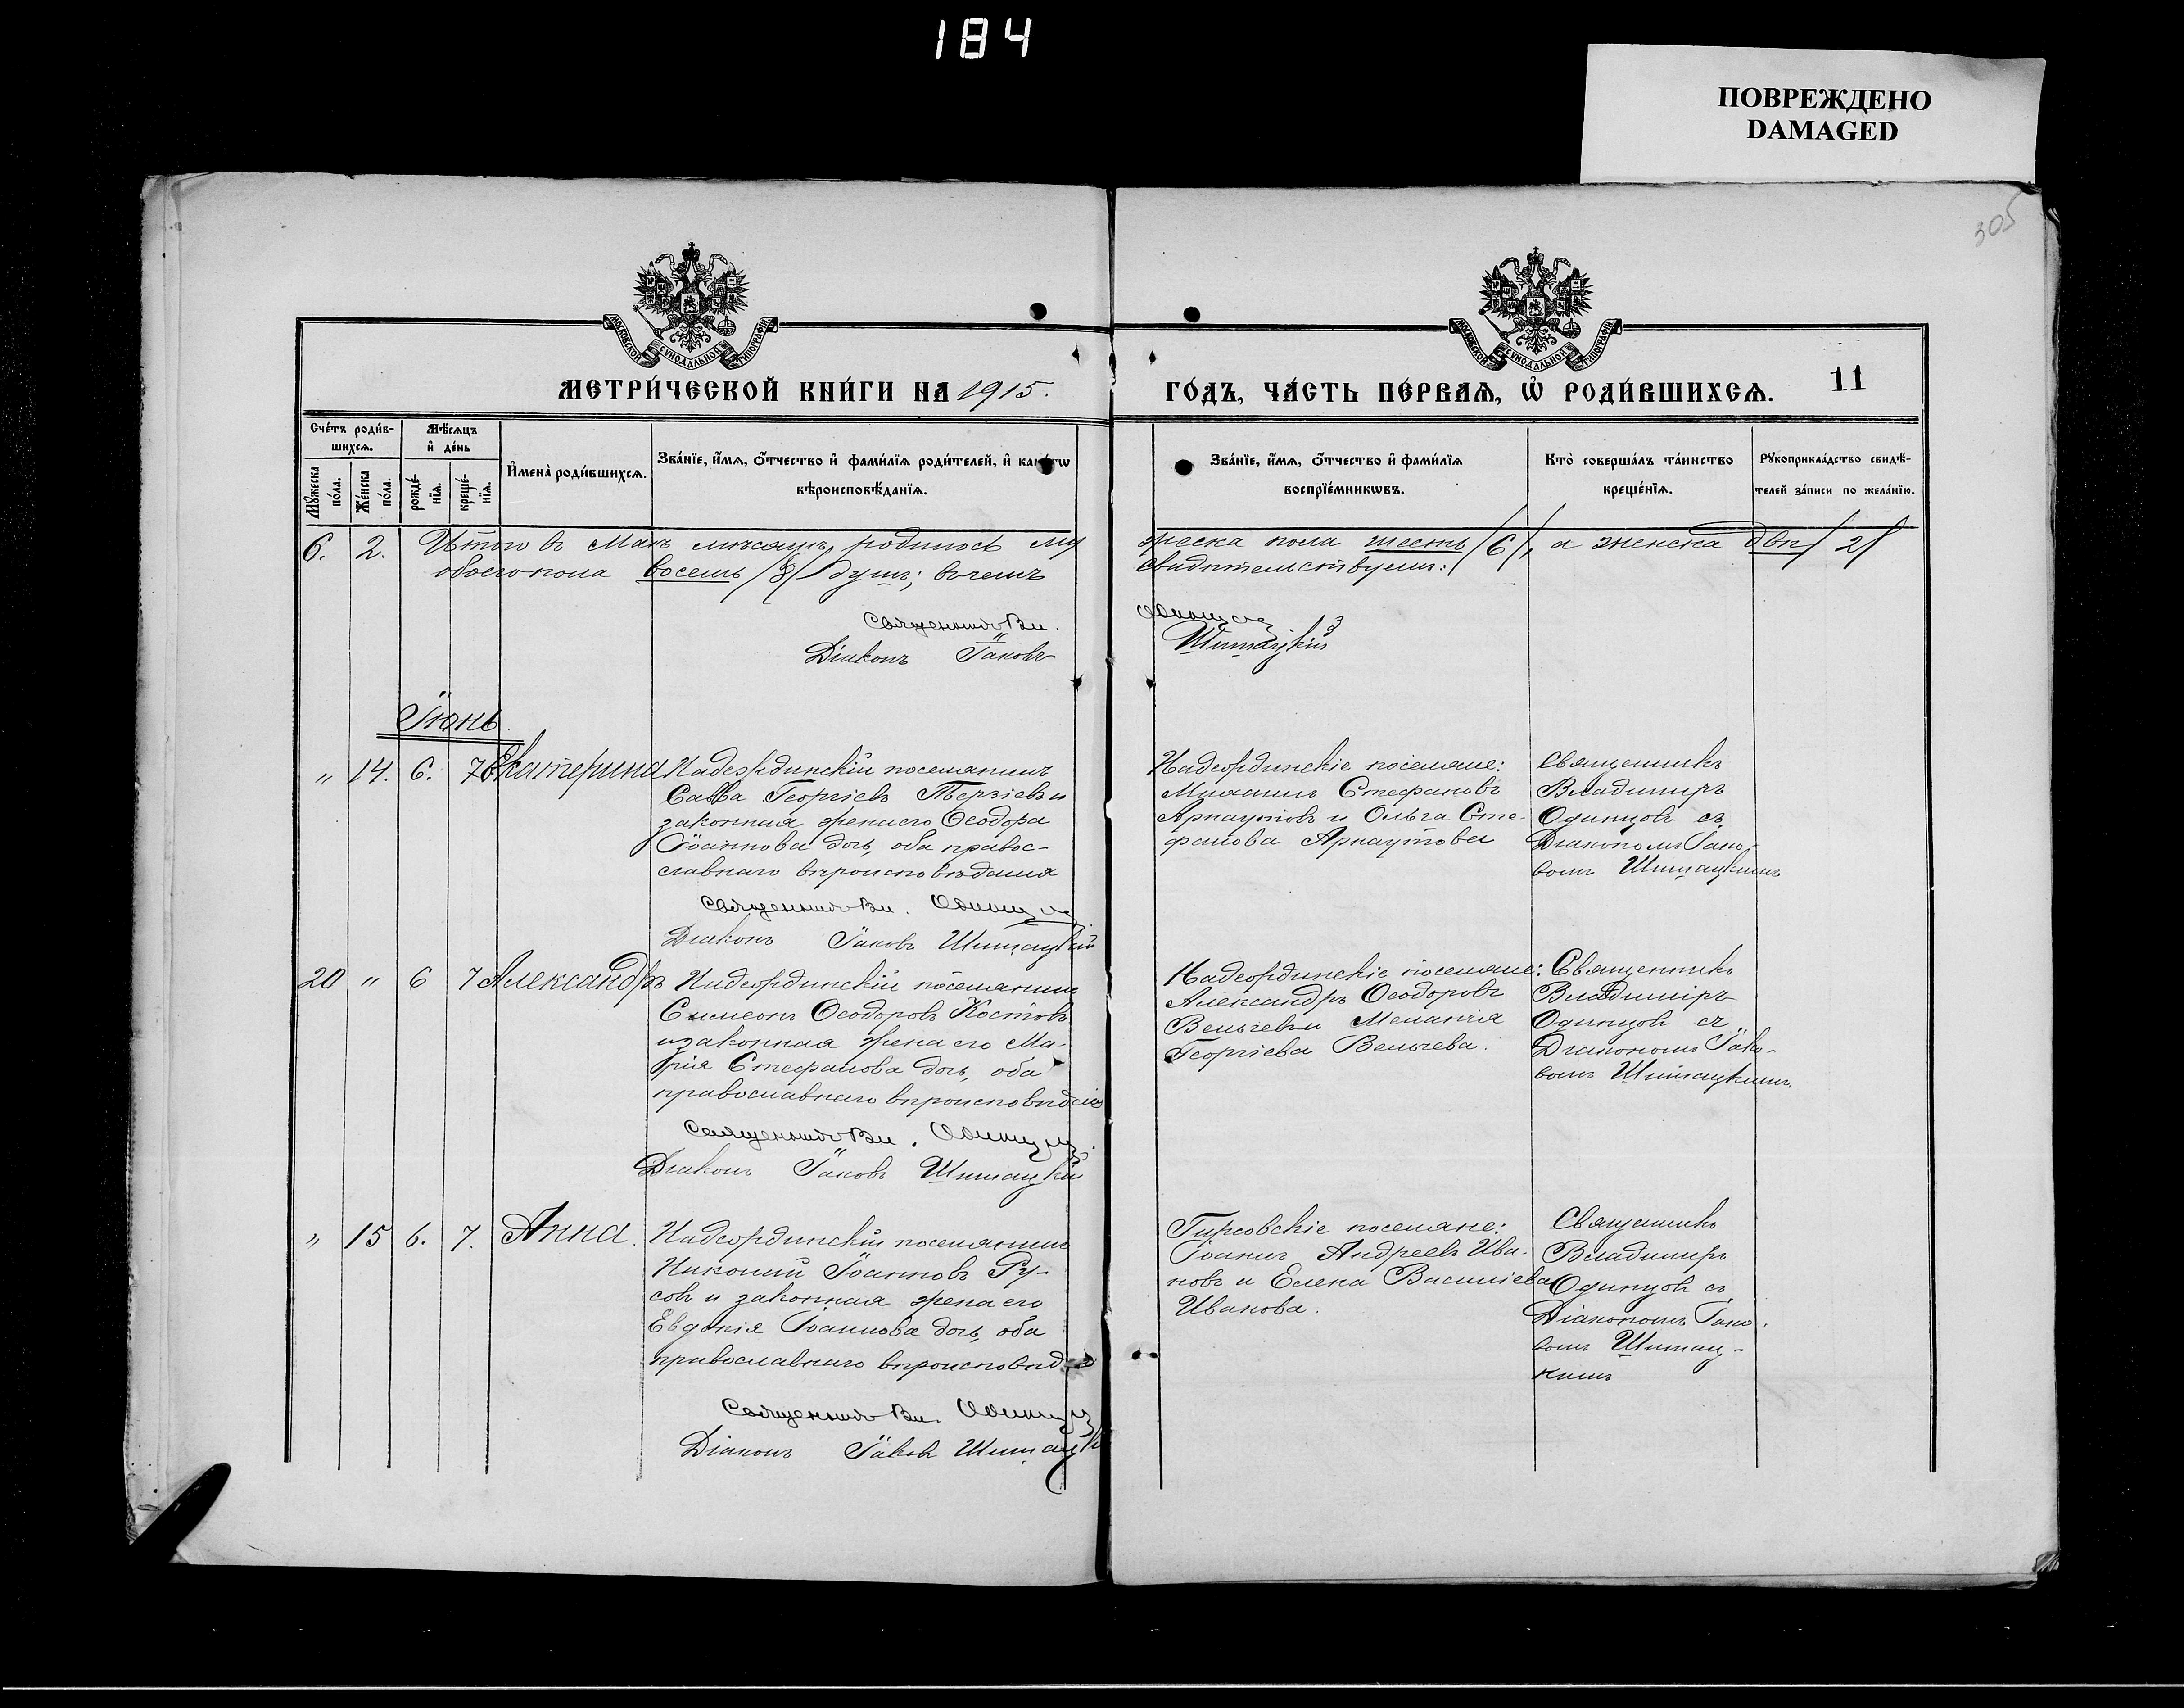 184
ПОВРЕЖДЕНО
DAMAGED
305
МОСКОВСКОЙ СѴНОДАЛЬНОЙ ТИПОГРАФІИ
МОСКОВСКОЙ СѴНОДАЛЬНОЙ ТИПОГРАФІИ
МЕТРИ́ЧЕСКОЙ КНИ́ГИ НА 1915.
ГО́ДЪ, ЧА́СТЬ ПЕ́РВАѦ, Ѡ҆ РОДИ́ВШИХСѦ.
11
Сче́тъ роди́в-
шихсѧ.
Мѣ́сѧцъ
и҆ де́нь
Мꙋ́жеска
по́ла.
Же́нска
по́ла.
рожде́-
нїѧ.
креще́-
нїѧ.
И҆мена̀ роди́вшихсѧ.
Зва́нїе, и҆́мѧ, ѻ҆́тчество и҆ фами́лїѧ роди́телей, и҆ како́гѡ
вѣроисповѣ́данїѧ.
Зва́нїе, и҆́мѧ, ѻ҆́тчество и҆ фами́лїѧ
воспрїе́мникѡвъ.
Кто̀ соверша́лъ та́инство
креще́нїѧ.
Рꙋкоприкла́дство свидѣ́-
телей за́писи по жела́нїю.
6. 2. Итого въ Маѣ мѣсяцѣ родилось му
жеска пола шесть /6/, а женска двѣ /2/
обоего пола восемь /8/ душъ; въ чемъ
свидѣтельствуемъ:
Священникъ Вл. Одинцовъ
Діаконъ Іаковъ Шишацкій
Іюнь.
" 14. 6. 7 Екатерина
Надеординскій поселянинъ
Савва Георгіевъ Терзіевъ и
законная жена его Ѳеодора
Іоаннова дочь, оба правос-
славнаго вѣроисповѣданія
Священникъ Вл. Одинцовъ
Діаконъ Іаковъ Шишацкій
Надеординскіе поселяне:
Стефановъ
Арнаутовъ и Ольга Сте-
фанова Арнаутова
Священникъ
Владимиръ
Одинцовъ съ
Діакономъ Іако-
вомъ Шишацкимъ
20 " 6 7 Александръ
Надеординскій поселянинъ
Симеонъ Ѳеодоровъ Костовъ
и законная жена его Ма-
рія Стефанова дочь, оба
православнаго вѣроисповѣданія
Священникъ Вл. Одинцовъ
Діаконъ Іаковъ Шишацкій
Надеординскіе поселяне:
Александръ Ѳеодоровъ
Вельчевъ и Меланія
Георгіева Вельчева.
Священникъ
Владимиръ
Одинцовъ съ
Діакономъ Іако-
вомъ Шишацкимъ
" 15 6. 7. Анна.
Надеординскій поселянинъ
Іоанновъ Ру-
совъ и законная жена его
Евдокія Іоаннова дочь, оба
православнаго вѣроисповѣд
Священникъ Вл. Одинцовъ
Діаконъ Іаковъ Шишацк
Гирсовскіе поселяне:
Іоаннъ Андреевъ Ива-
новъ и Елена Василіева
Иванова.
Священникъ
Владимиръ
Одинцовъ съ
Діакономъ Іако-
вомъ Шишац-
кимъ